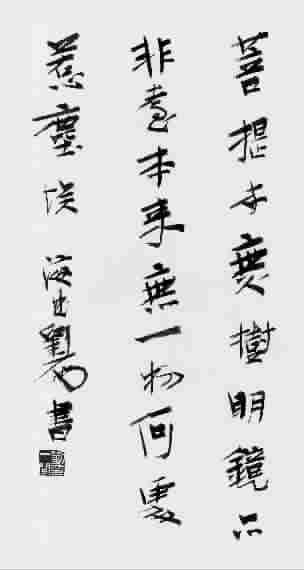 菩提本無樹明鏡亦
非臺本来無一物何處
惹塵埃 劉書